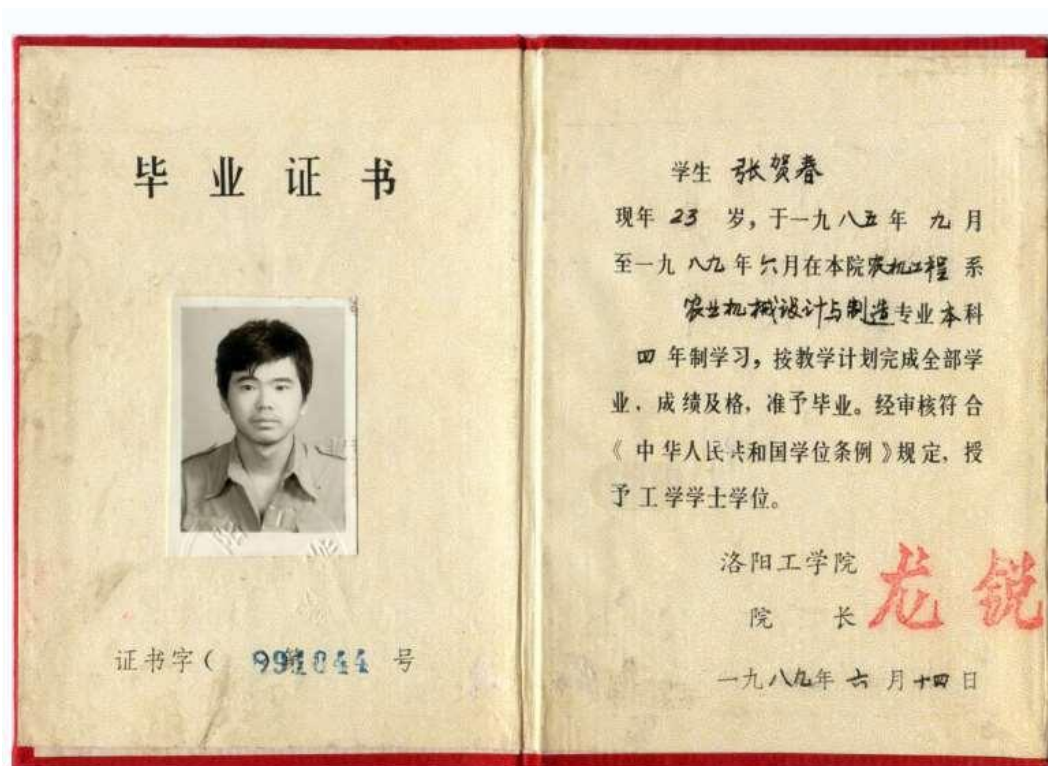 毕业证书
证书字( 第991044 号
学生 张贺春
现年 23 岁，于一九八五年 九月
至一九八九年六月在本院农机工程 系
农业机械设计与制造专业本科
四年制学习，按教学计划完成全部学
业，成绩及格，准予毕业。经审核符合
《中华人民共和国学位条例》规定，授
予工学学士学位。
洛阳工学院
院 长 龙锐
一九八九年六月十四日